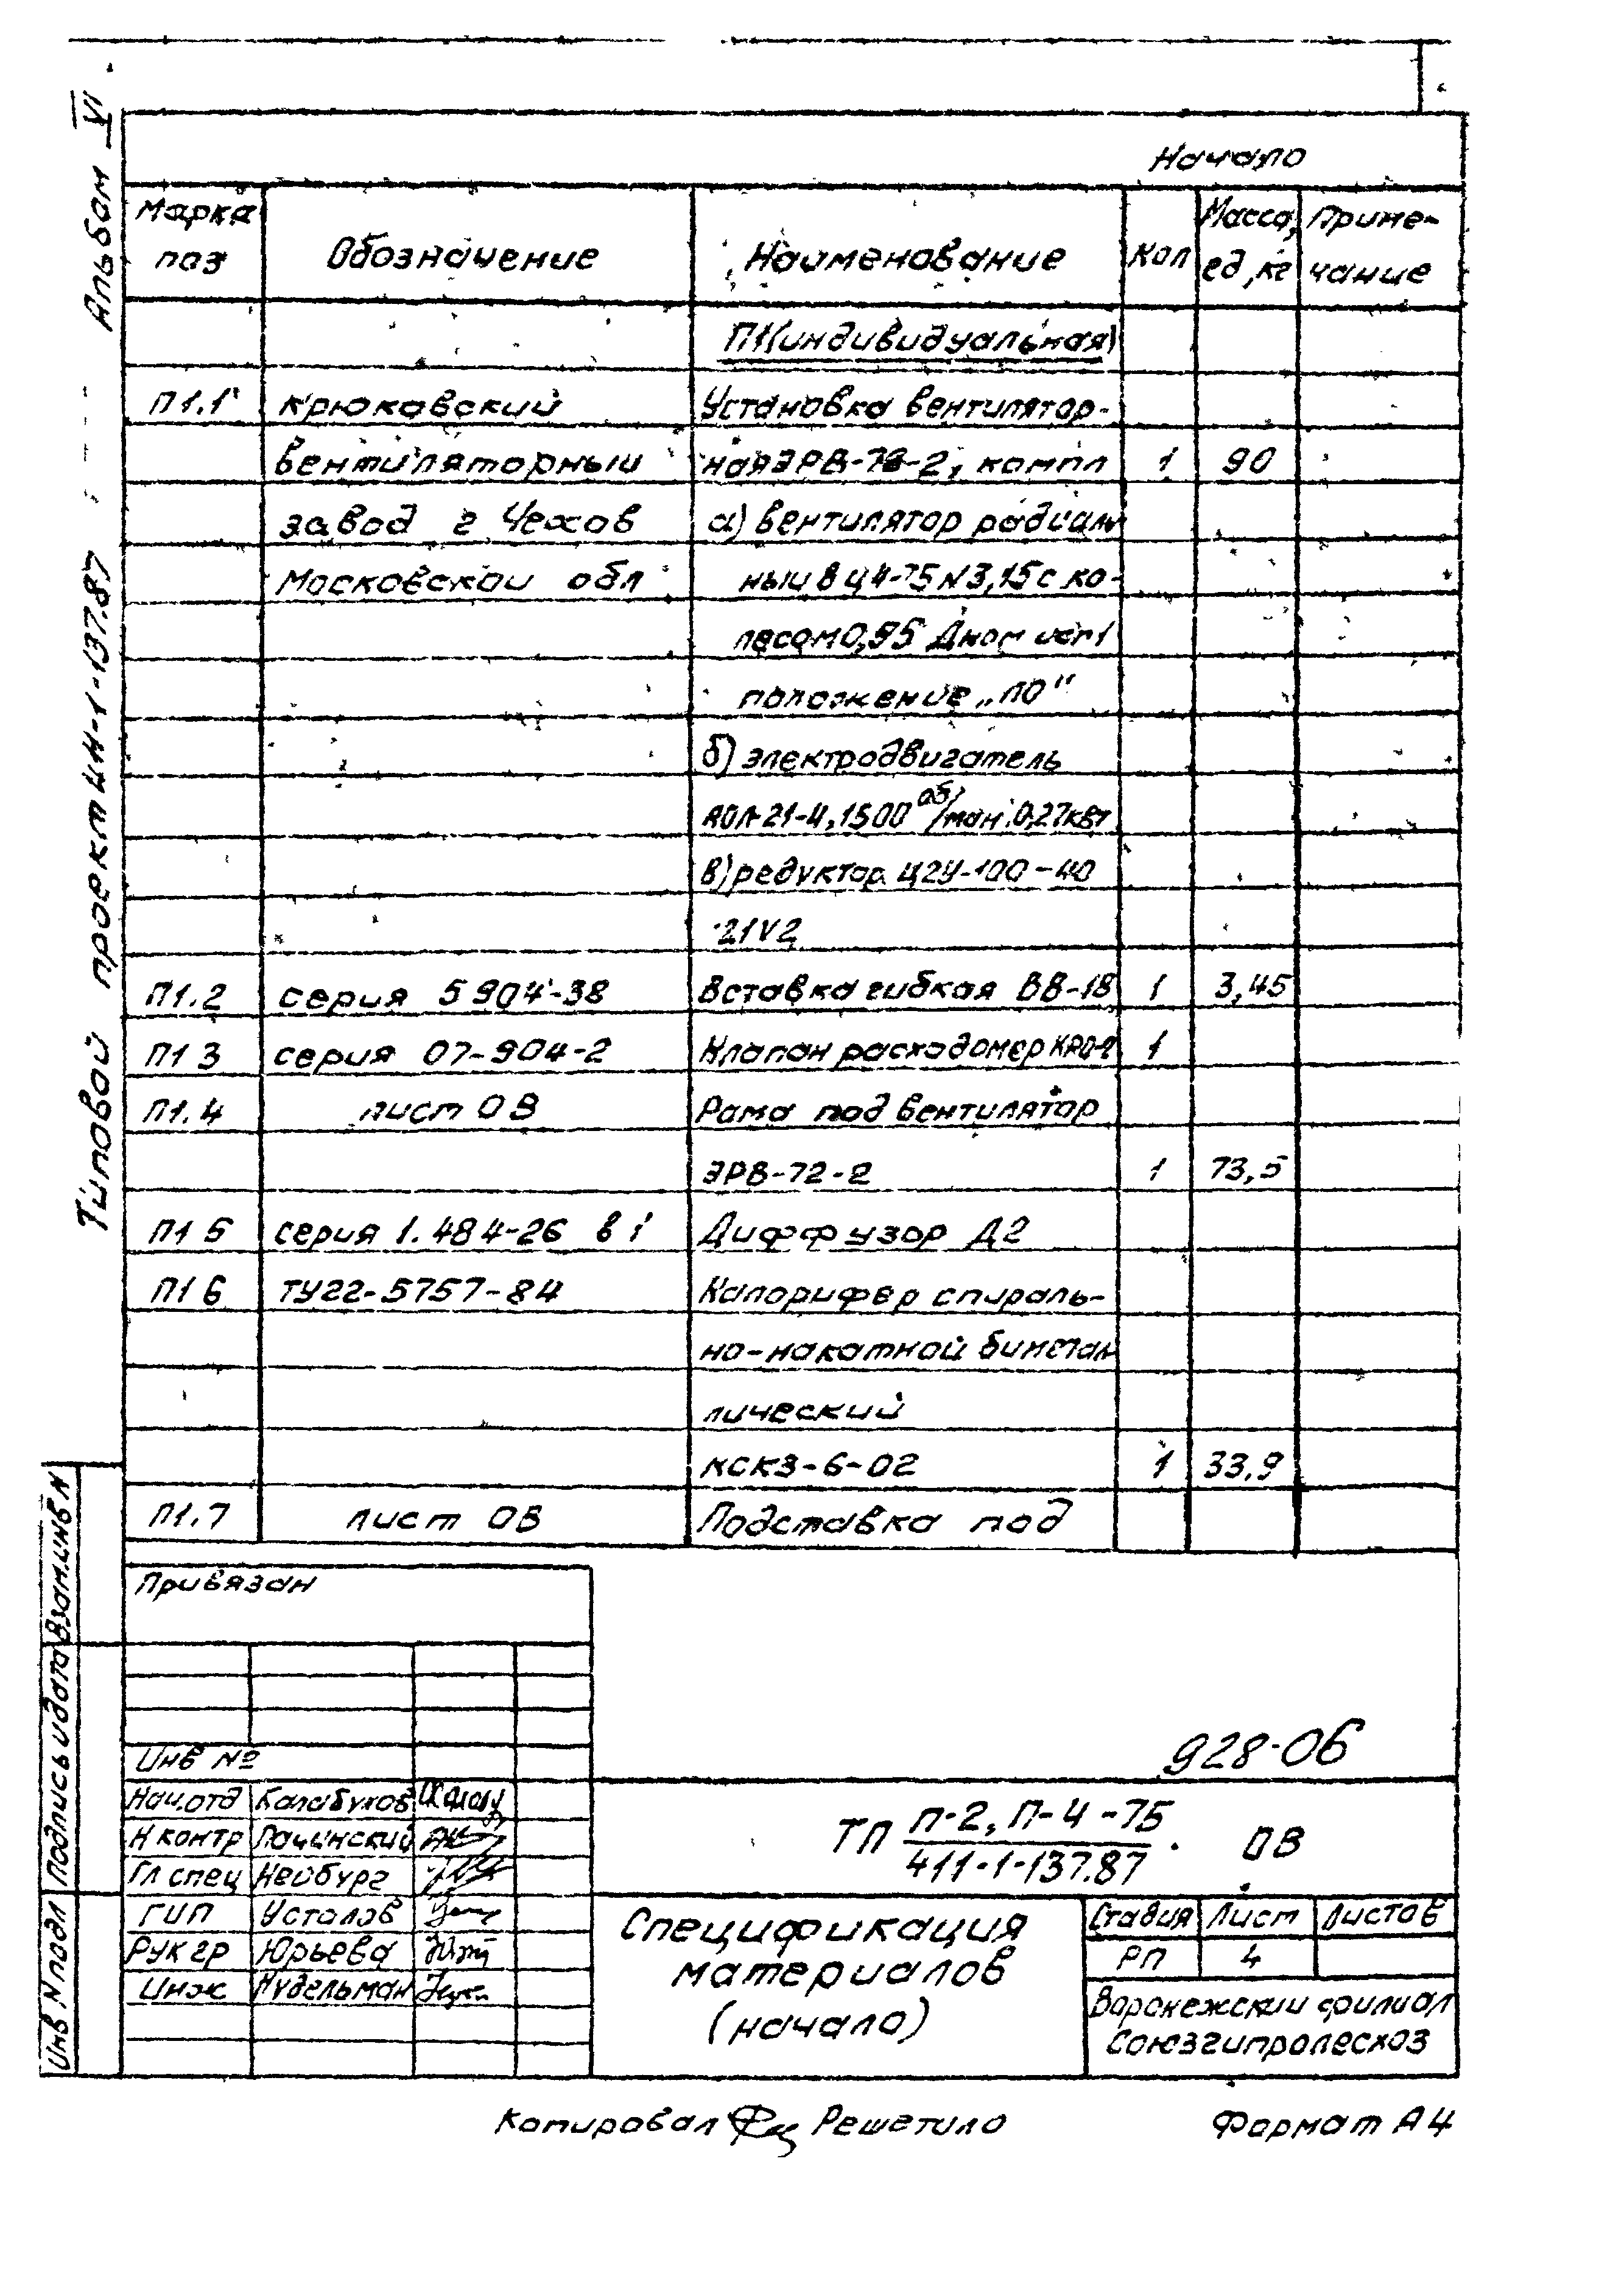 Альбом VI
Типовой проект IН-1-137.87
Начало
Марка поз
Обозначение
Наименование
Кол
Масса, ед, кг
Примечание
П1(индивидуальная)
П1.1 Крюковский Установка вентилятор-
вентиляторный ная ЭРВ-72-2, компл 1 90
завод г Чехов а) вентилятор радиаль
Московской обл ный В Ц4-75 N3,15 с ко-
лесом 0,95 Дном исп1
положение „ЛО"
б) электродвигатель
АОЛ-21-4, 1500 об/мин. 0,27квт
в) редуктор Ц2У-100-40
21У2
П1.2 серия 5 904-38 Вставка гибкая ВВ-18 1 3,45
П1 3 серия 07-904-2 Клапан расходомер КРО-2 1
П1.4 лист ОВ Рама под вентилятор
ЭРВ-72-2 1 73,5
П1 5 серия 1.484-26 в 1 Диффузор Д2
П1 6 ТУ22-5757-84 Калорифер спираль-
но-накатной биметал
лический
КСК3-6-02 1 33,9
П1.7 лист ОВ Подставка под
Привязан
Инв №
928-06
Нач.отд Калабухов
Н контр Лачинский
Гл спец Нейбург
ГИП Усталов
Рук гр Юрьева
Инж Нудельман
ТП П-2, П-4-75 / 411-1-137.87 ОВ
Спецификация
материалов
(начало)
Стадия Лист Листов
РП 4
Воронежский филиал
Союзгипролесхоз
Взам.инв N
Подпись и дата
Инв N подл
Копировал Решетило
Формат А4